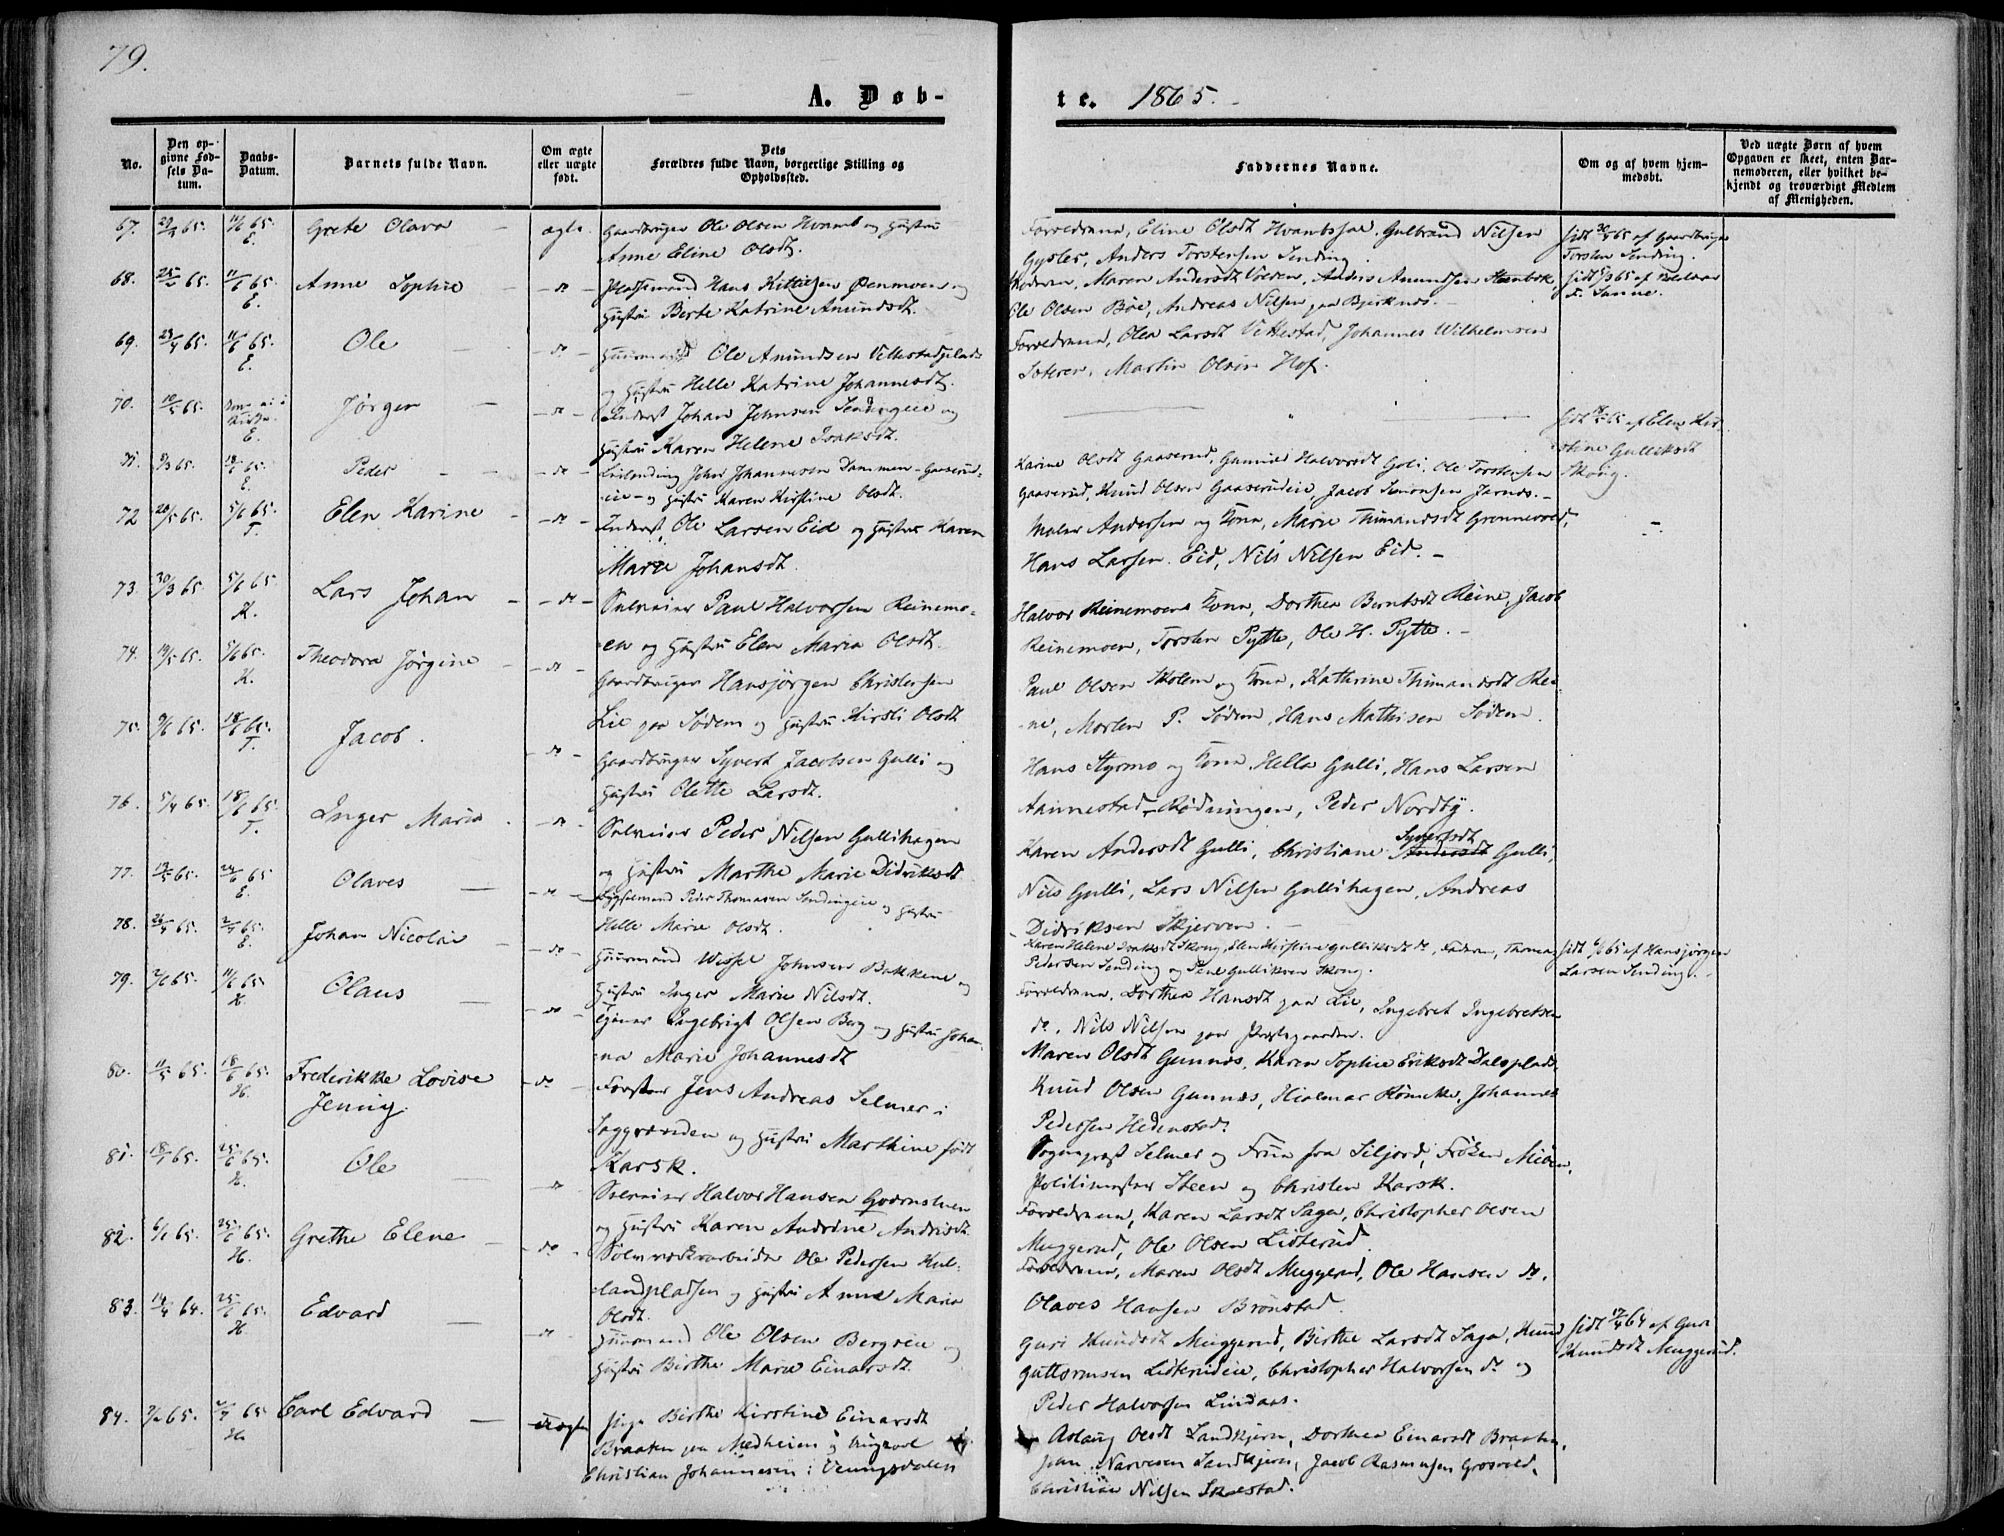 79.
A. Døb-
te. 1865.
No.
Den op-
givne Fød-
sels Da-
tum.
Daabs-
Datum.
Barnets fulde Navn.
Om ægte
eller uægte
født.
Dets
Forældres fulde Navn, borgerlige Stilling og
Opholdssted.
Faddernes Navne.
Om og af hvem hjem-
medøbt.
Ved uægte Børn af hvem
Opgaven er skeet, enten Bar-
nemoderen, eller hvilket be-
kjendt og troværdigt Medlem
af Menigheden.
67. 65. 11/6 65. E. Grete Olava ægte. Gaardbruger Ole Olsen og Hustru
Anne Eline Olsdt.
Forældrene, Eline Olsdt Gulbrand Nilsen
Anders Torstensen Sending.
hjdt 65 af Gaardbruger
Torsten Sending.
68. 65. 11/6 65. E. Anne Sophie do Pladsmand Hans Kittilsen Øenmoen og
Hustru Berte Katrine Amundsdt.
Maren Andersdt Anders Amundsen
Ole Olsen Bøe, Andreas Nilsen paa Bjerknes.
hjdt 65 af
69. 23/4 65. 11/6 65. E. Ole do Huusmand Ole Amundsen Vettestadplads
og Hustru Helle Katrine Johannesdt.
Forældrene, Olea Larsdt Vettestad, Johannes Wilhelmsen
Martin Olsen Hof.
70. 10/5 65. E. Jørgen do Inderst Johan Johnsen Sendingeie og
Hustru Karen Helene Isaksdt.
hjdt 65 af Elen Kir
stine Gulliksdt
Skong.
71. 9/3 65. 18/6 65. E. Peder do Johan Johannesen Dammen - Gaaserud-
eie - og Hustru Karen Kirstine Olsdt.
Karine Olsdt Gaaserud, Gunild Halvorsdt Ole Torstensen
Gaaserud, Knud Olsen Gaaserudeie, Jacob Simonsen Jarnes.
72 20/5 65. 5/6 65. T. Elen Karine do Inderst Ole Larsen Eid og Hustru Karen
Marie Johansdt.
Andersen og Kone, Marie Thimandsdt Grønnevold,
Hans Larsen Eid, Nils Nilsen Eid.
73. 30/3 65. 5/6 65. K. Lars Johan do Selveier Paul Halvorsen Reinemo-
en og Hustru Elen Maria Olsdt.
Halvor Reinemoens Kone, Dorthea Berntsdt Reine, Jacob
Reinemoen, Torsten Pytte, Ole H. Pytte.
74. 19/5 65. 5/6 65. K. Theodora Jørgine do Gaardbruger Hansjørgen Christensen
Lie paa Sødem og Hustru Kirsti Olsdt
Paul Olsen Skolem og Kone, Kathrine Thimandsdt Rei-
ne, Morten P. Sødem, Hans Mathisen Sødem.
75. 9/6 65. 18/6 65. T. Jacob. do Gaardbruger Syvert Jacobsen Gulli og
Hustru Olette Larsdt.
Hans Styrmo og Kone, Helle Gulli, Hans Larsen
Aannestad-Rødningen, Peder Nordby.
76. 5/4 65. 18/6 65. T. Inger Maria do Selveier Peder Nilsen Gullihagen
og Hustru Marthe Marie Didriksdt
Karen Andersdt Gulli, Christiane Syvertsdt Gulli,
Nils Gulli, Lars Nilsen Gullihagen, Andreas
Didriksen Skjerven.
77. 65. 65 E. Olaves do Peder Thomasen Sendingeie og Hustru
Helle Marie Olsdt.
Karen Helene Isaksdt Skong, Elen Kirstine Gulliksdt do, Faderen, Thomas
Pedersen Sending og Gulliksen Skong.
hjdt 65 af Hansjørgen
Larsen Sending.
78. 26/4 65. 2/7 65. E. Johan Nicolai do Huusmand Johnsen Bakkene og
Hustru Inger Marie Nilsdt.
Forældrene, Dorthea Hansdt paa Lie, Ingebret Ingebretsen
do, Nils Nilsen paa Præstegaarden.
79. 2/6 65. 11/6 65. H. Olaus do Tjener Ingebrigt Olsen Berg og Hustru Johan-
na Marie Johannesdt
Maren Olsdt Gunnes, Karen Sophie Eriksdt Dalsplads,
Knud Olsen Gunnes, Hialmar Johannes
Pedersen Hedenstad.
80. 11/5 65. 18/6 65. H. Frederikke Lovise
Jenny. do Forstner Jens Andreas Selmer i
Saggrænden og Hustru Marthine født
Karsk.
Sognepræst Selmer og Frue fra Siljord, Frøken
Politimester Steen og Christen Karsk.
81. 18/1 65. 25/6 65. H. Ole do Selveier Halvor Hansen
og Hustru Karen Andrine Andrisdt.
Forældrene, Karen Larsdt Saga, Christopher Olsen
Muggerud, Ole Olsen Lidterud.
82. 6/1 65. 25/6 65. H. Grethe Elene do Sølvværksarbeider Ole Pedersen Kul-
landpladsen og Hustru Anne Maria
Olsdt.
Forældrene, Maren Olsdt Muggerud, Ole Hansen do,
Olaves Hansen Brønstad.
83. 14/4 64. 25/6 65. H Edvard do Huusmand Ole Olsen Bergseie og
Hustru Birthe Marie Einarsdt.
Guri Knudsdt Muggerud, Birthe Larsdt Saga, Knud
Guttormsen Lidterudeie, Christopher Halvorsen do og
Peder Halvorsen Lindaas.
hjdt 17/4 64 af Guri
Knudsdt Muggerud.
84. 65. 2/7 65 H. Carl Edvard uægte Pige Birthe Kirstine Einarsdt
Braaten paa Medheien og Ungkarl
Christian Johannesen i Veningsdalen
Aslaug Olsdt Landkjern, Dorthea Einarsdt Braaten,
John Narvesen Landkjern, Jacob Rasmusen Grosvold,
Christian Nilsen